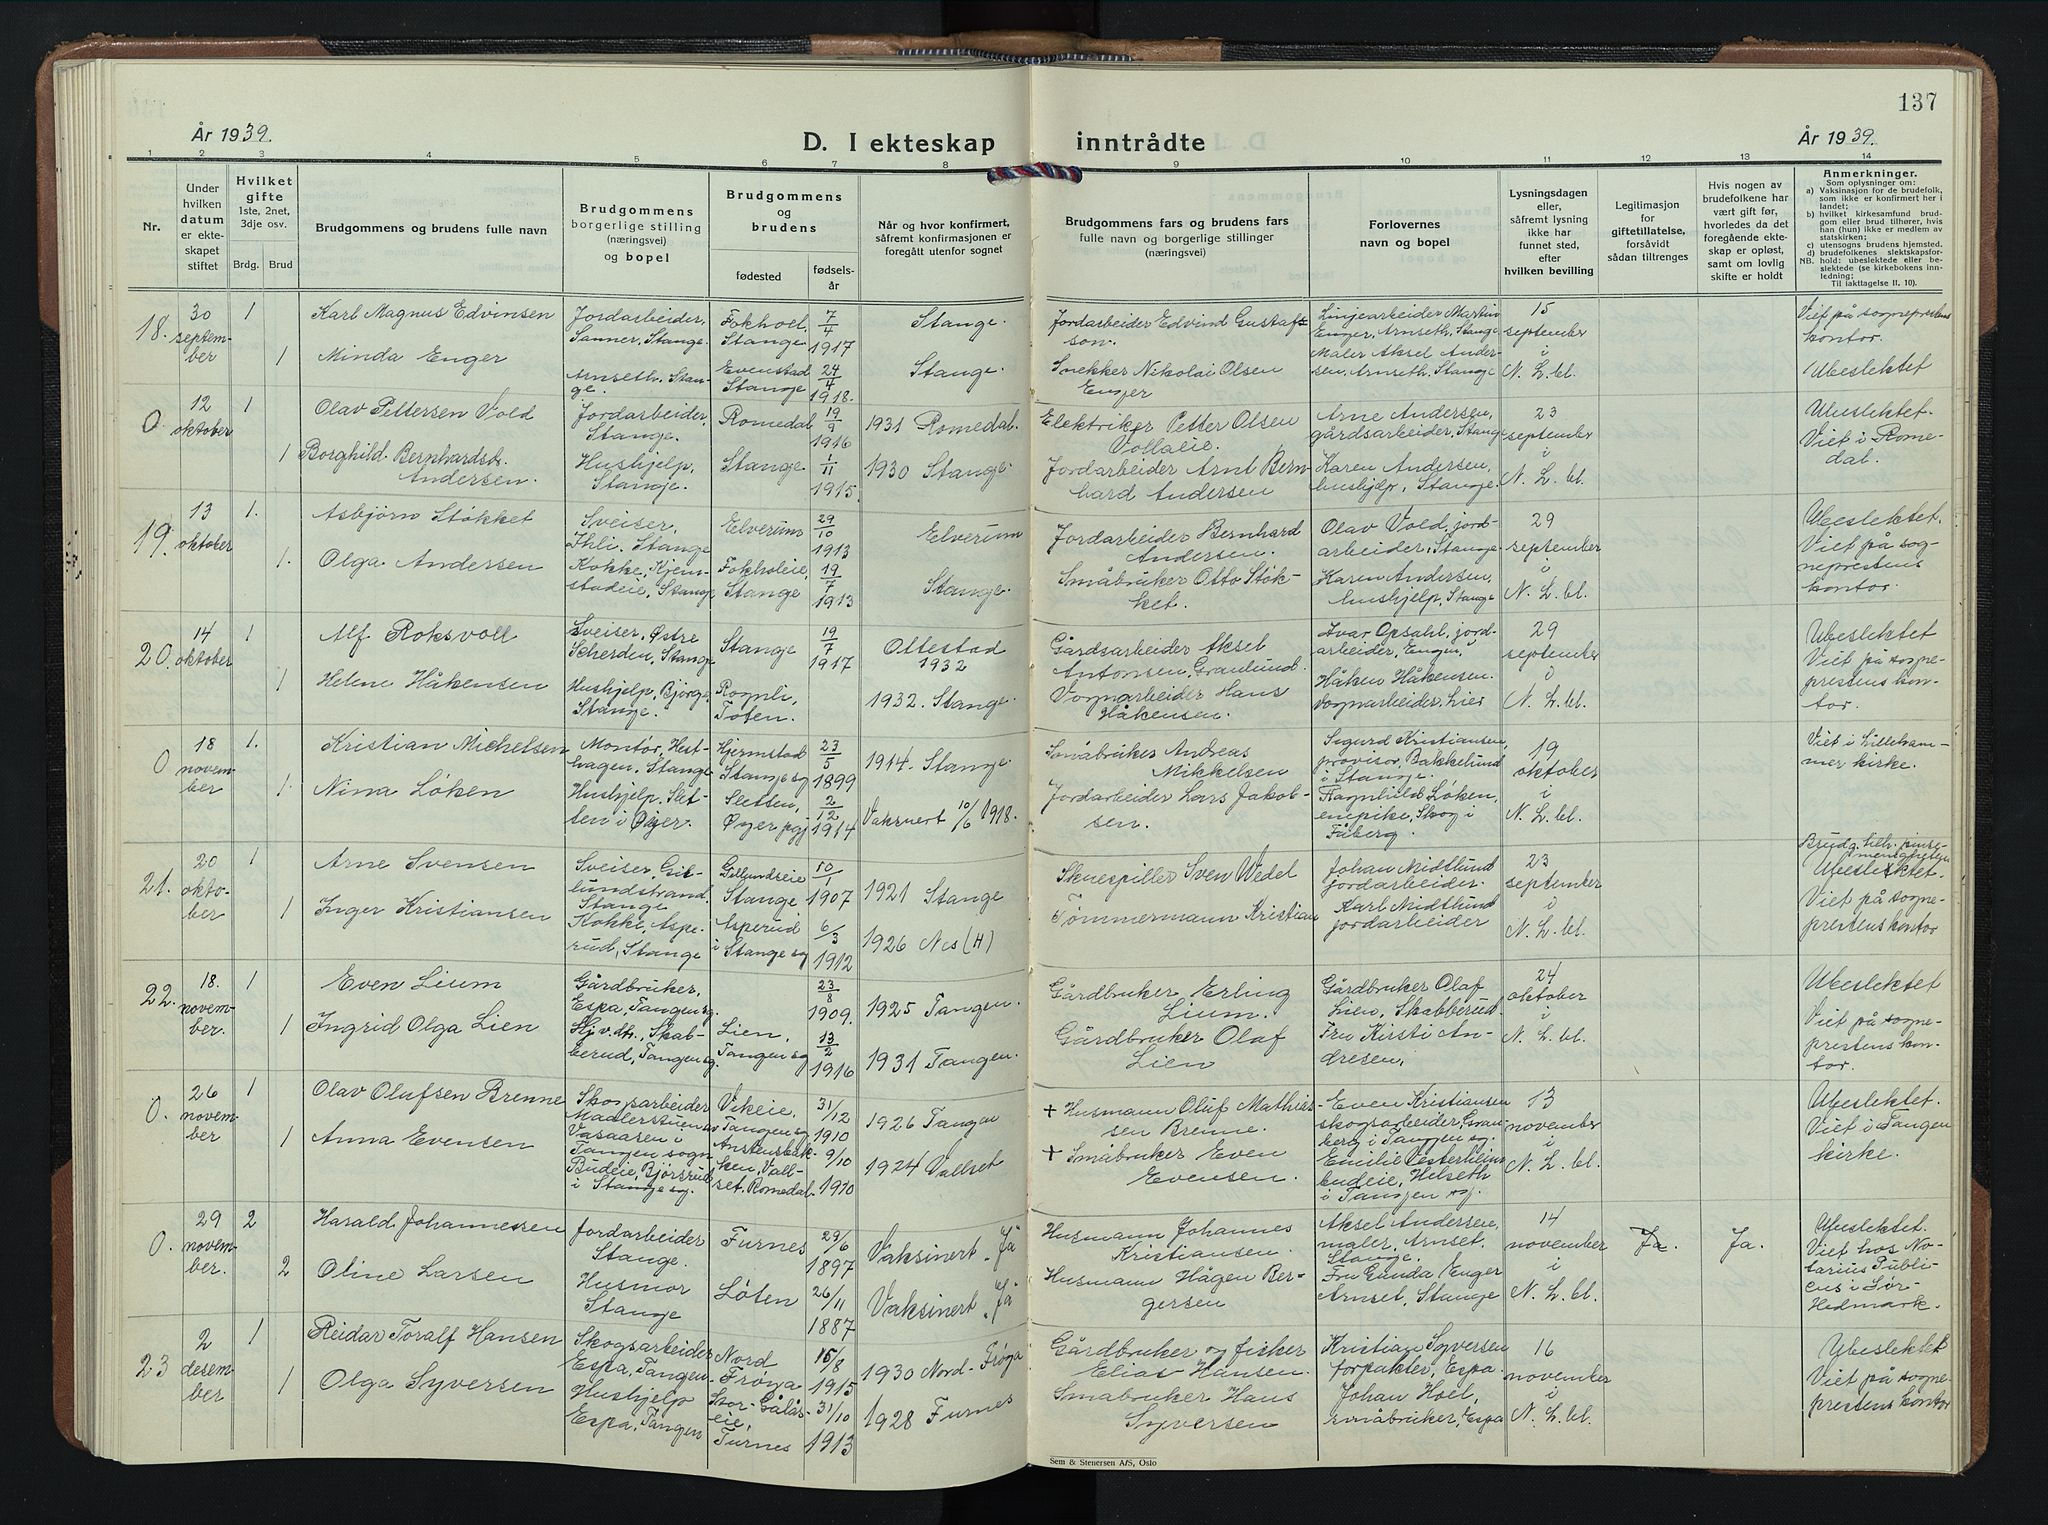 137
År 1939.
D. I ekteskap inntrådte
År 1939.
1 2 3 4 5 6 7 8 9 10 11 12 13 14
Nr.
Under hvilken datum er ekteskapet stiftet
Hvilket gifte
1ste, 2net, 3dje osv.
Brdg. Brud
Brudgommens og brudens fulle navn
Brudgommens borgerlige stilling (næringsvei) og bopel
Brudgommens og brudens
fødested
fødsels-år
Når og hvor konfirmert, såfremt konfirmasjonen er foregått utenfor sognet
Brudgommens fars og brudens fars fulle navn og borgerlige stillinger (næringsvei)
Forlovernes navn og bopel
Lysningsdagen eller, såfremt lysning ikke har funnet sted, efter hvilken bevilling
Legitimasjon for giftetillatelse, forsåvidt sådan tiltrenges
Hvis nogen av brudefolkene har vært gift før, hvorledes da det foregående ekteskap er opløst, samt om lovlig skifte er holdt
Anmerkninger.
Som oplysninger om:
a) Vaksinasjon for de brudefolk, som ikke er konfirmert her i landet;
b) hvilket kirkesamfund brudgom eller brud tilhører, hvis han (hun) ikke er medlem av statskirken;
c) utensogns brudens hjemsted.
d) brudefolkenes slektskapsforhold: ubeslektede eller beslektede (se kirkebokens innledning;
NB. Til iakttagelse II. 10).
18. 30 september 1 Karl Magnus Edvinsen Jordarbeider, Sanner, Stange. Fokhoel, Stange 7/4 1917 Stange.
Jordarbeider Edvind Gustafsson. Linjearbeider Martin Enger, Arnseth, Stange 15 september i N. L. bl. Viet på sogneprestens kontor.
1 Minda Enger Arnseth, Stange. Evenstad Stange 24/4 1918. Stange.
Snekker Nikolai Olsen Enger Maler Aksel Andersen, Arnseth, Stange Ubeslektet
0 12 oktober 1 Olav Pettersen Vold Jordarbeider, Stange. Romedal 19/9 1916 1931 Romedal.
Elektriker Petter Olsen Vollaeie. Arne Andersen, gårdsarbeider, Stange 23 september i N. L. bl. Ubeslektet. Viet i Romedal.
1 Borghild Bernhardsdt. Andersen. Hushjelp, Stange. Stange 1/11 1915. 1930 Stange.
Jordarbeider Arnt Bernhard Andersen Karen Andersen, hushjelp, Stange.
19. 13 oktober 1. Asbjørn Støkket Sveiser, Ihli. Stange Elverum 29/10 1913 Elverum
Jordarbeider Bernhard Andersen. Olav Vold, jordarbeider, Stange. 29 september i N. L. bl. Ubeslektet. Viet på sogneprestens kontor.
1. Olga Andersen Kokke, Kjemstadeie, Stange Fokholeie, Stange 19/7 1913 Stange.
Småbruker Otto Støkket. Karen Andersen, hushjelp, Stange
20. 14 oktober 1 Alf Roksvoll Sveiser, Østre Scherden, Stange Stange 19/7 1917 Ottestad 1932
Gårdsarbeider Aksel Antonsen, Granlund. Ivar Opsahl, jordarbeider, Engen, 29 september i N. L. bl. Ubeslektet Viet på sogneprestens kontor.
1 Helene Håkensen Hushjelp, Bjørge, Stange. Rognli, Toten. 1932. Stange.
Vognarbeider Hans Håkensen. Håken Håkensen. vognarbeider, Lier
0 18 november 1. Kristian Michelsen Montør, Hesthagen, Stange Hjermstad Stange sg 23/5 1899 1914. Stange.
Småbruker Andreas Mikkelsen Sigurd Kristiansen, provisor, Bakkelund i Stange. 19 oktober i N. L. bl. Viet i Lillehammer kirke.
1. Nina Løken Hushjelp, Sletten i Øyer. Sletten, Øyer pgj 2/12 1914 Vaksnert 10/6 1918.
Jordarbeider Lars Jakobsen. Ragnhild Løken, enepike, Skog i Fåberg.
21. 20 oktober 1 Arne Svensen Sveiser, Gillundstrand, Stange Gillundseie Stange 10/1 1907 1921 Stange
Skuespiller Sven Wedel Johan Midtlund jordarbeider. 23 september i N. L. bl. Brudg. tilh. pinsemenigheten Ubeslektet. Viet på sogneprestens kontor
1 Inger Kristiansen Kokke, Asperud, Stange Asperud i Stange sg 6/3 1912 1926 Nes (H)
Tømmermann Kristian Karl Midtlund jordarbeider
22. 18. november. 1 Even Lium Gårdbruker, Espa, Tangen sg. 23/8 1909. 1925 Tangen.
Gårdbruker Erling Lium. Gårdbruker Olaf Lien, Skabberud. 24 oktober i N. L. bl. Ubeslektet Viet på sogneprestens kontor.
1 Ingrid Olga Lien Hj.v.dtr., Skabberud, Tangen sg. Lien, Tangen sg 13/2 1916 1931 Tangen.
Gårdbruker Olaf Lien Fru Kirsti Andresen,
0. 26 november 1 Olav Olufsen Brenne Skogsarbeider Madlerstuen av Vasaasen i Tangen sogn Vikeie, Tangen sg 31/12 1910 1926 Tangen
+ Husmann Oluf Mathissen Brenne. Even Kristiansen skogsarbeider, Granberg i Tangen sg. 13 november i N. L. bl. Ubeslektet. Viet i Tangen kirke.
1 Anna Evensen Budeie, Bjørsrud i Stange sg. Anstensbakken, Vallset, Romedal. 9/10 1910 1924 Vallset
+ Småbruker Even Evensen. Emilie Vesterhlinn budeie, Helseth i Tangen sg.
0. 29 november. 2 Harald Johannessen Jordarbeider Stange. Furnes 29/6 1897 Vaksinert "Ja"
Husmann Johannes Kristiansen. Aksel Andersen, maler, Arnset, Stange. 14 november i N. L. bl. Ja. Ja. Ubeslektet. Viet hos Notarius Publicus i Sør-Hedmark.
2 Oline Larsen Husmor Stange Løten 26/11 1887 Vaksinert "Ja"
Husmann Hågen Bergersen Fru Gunda Enger Arnset, Stange
23 2 desember 1 Reidar Toralf Hansen Skogsarbeider Espa, Tangen. Nord Frøya 15/8 1915 1930 Nord-Frøya
Gårdbruker og fisker Elias Hansen. Kristian Syversen forpakter, Espa. 16 november i N. L. bl. Ubeslektet Viet på sogneprestens kontor
1 Olga Syversen Hushjelp Espa, Tangen Stor-Gålåseie, Furnes 31/10 1913 1928 Furnes
Småbruker Hans Syversen Johan Hoel, småbruker, Espa
Sem & Stenersen A/S, Oslo